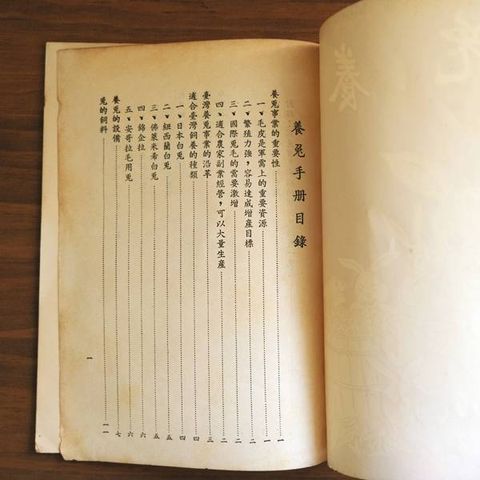 養兎手册目錄
養兎事業的重要性……一
一、毛皮是軍需上的重要資源……一
二、繁殖力強，容易達成增産目標……二
三、國際兎毛的需要激增……二
四、適合農家副業經營，可以大量生産……二
臺灣養兎事業的沿革……三
適合臺灣飼養的種類……四
一、日本白兎……四
二、紐西蘭白兎……五
三、佛萊米希白兎……五
四、錦金拉……六
五、安哥拉毛用兎……六
養兎的設備……七
兎的飼料……一一
一
養